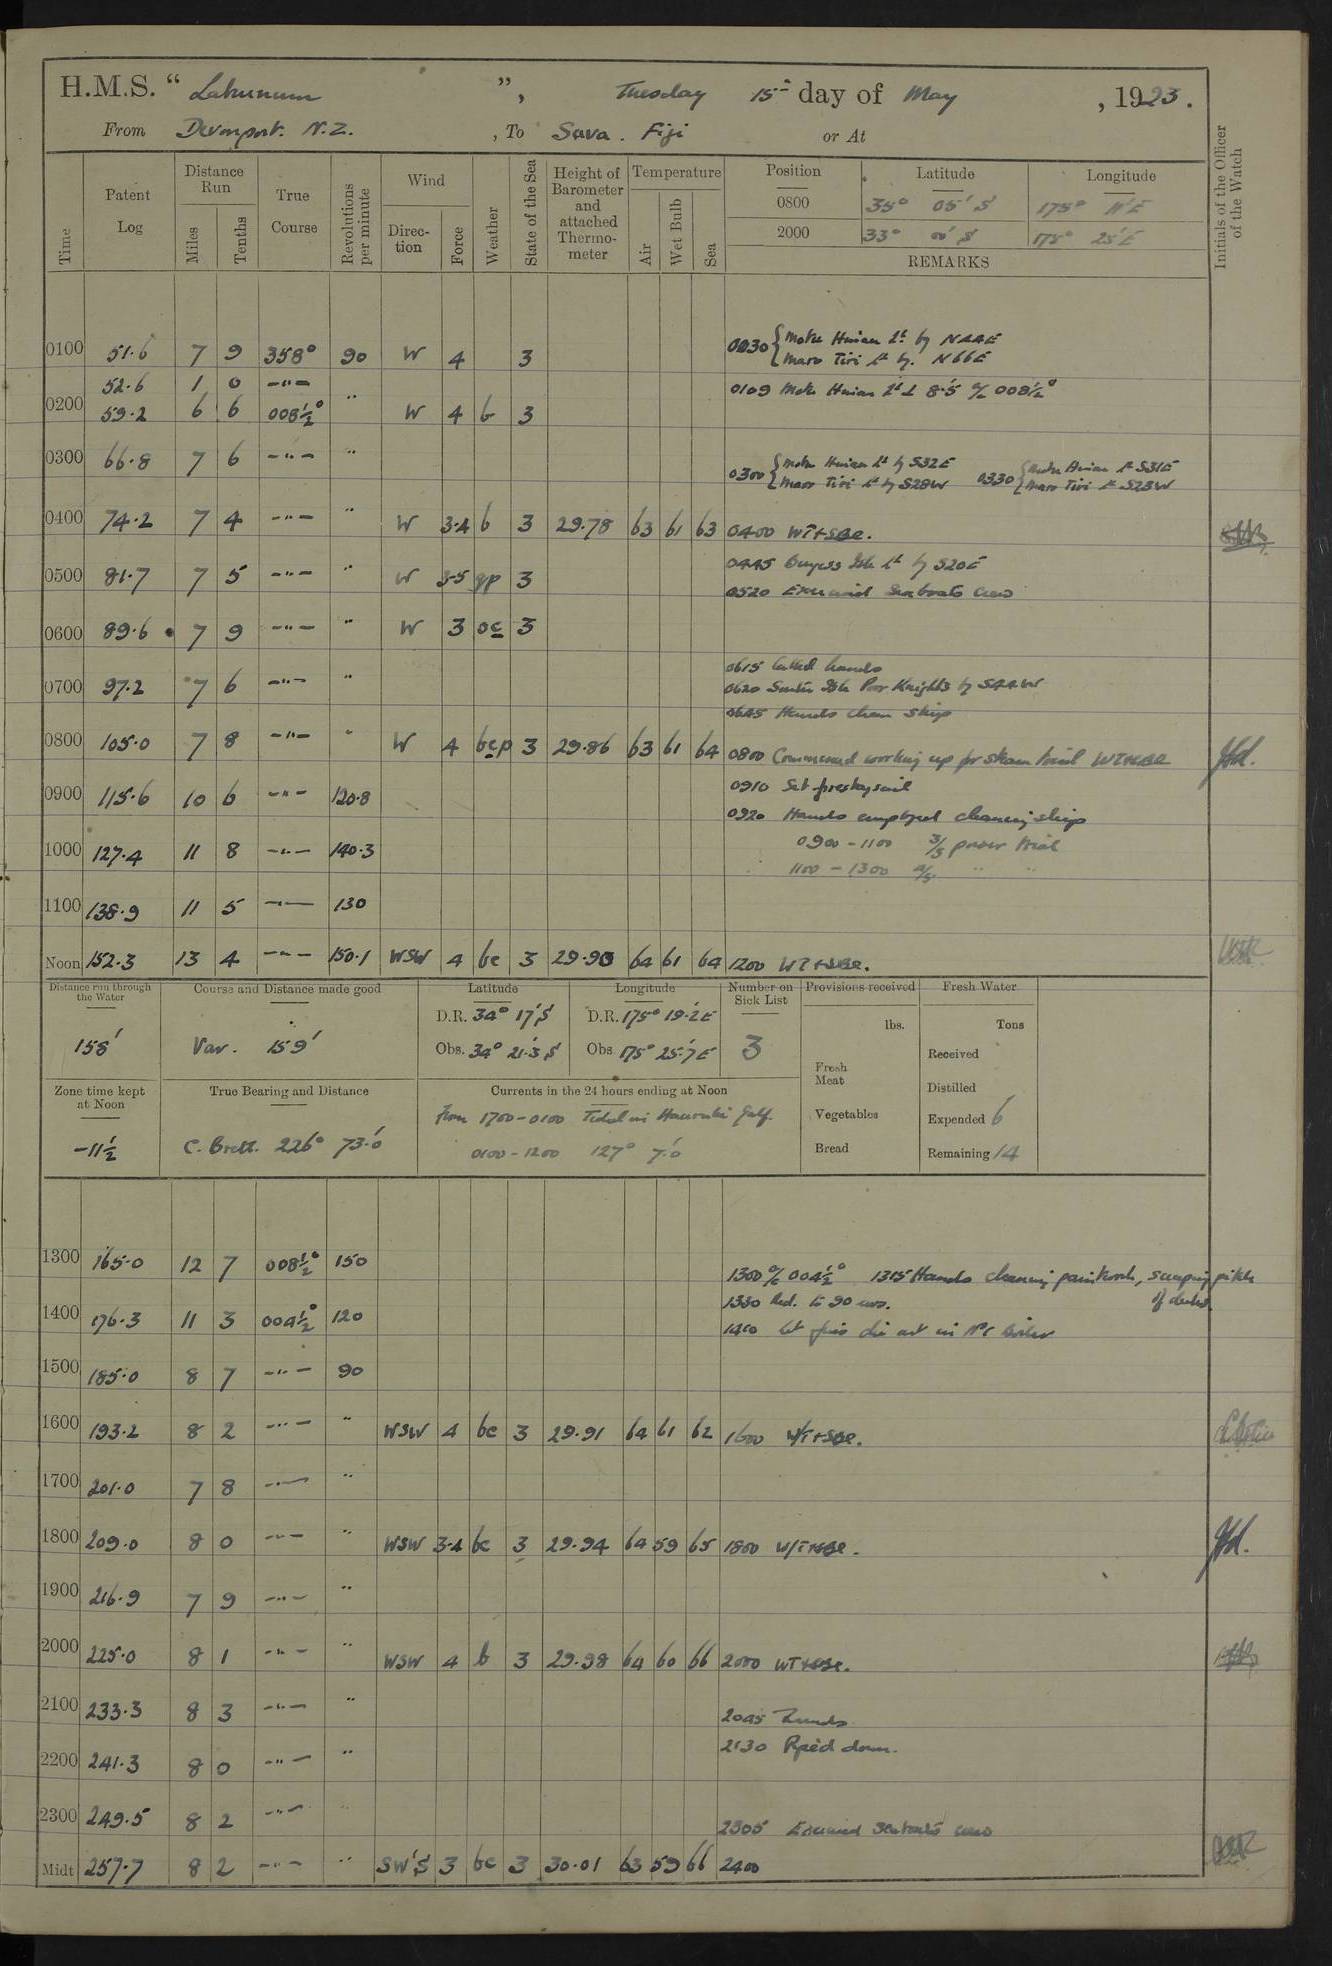 H.M.S. “ Laburnum ”, Tuesday 15th day of May , 1923.
From Devonport. N.Z. , To Suva. Fiji or At
Time Patent Log Distance Run Miles Tenths True Course Revolutions per minute Wind Direction Force Weather State of the Sea Height of Barometer and attached Thermometer Temperature Air Wet Bulb Sea Position Latitude Longitude Initials of the Officer of the Watch
0800 35° 05' S 175° 11' E
2000 33° 00' S 175° 25' E
REMARKS
0030 { Moko Hinau Lt by N44E
0100 51.6 7 9 358° 90 W 4 3 Maro Tiri Lt by. N66E
52.6 1 0 —"— 0109 Moko Hinau Lt ⊥ 8.5' a/c 008½°
0200 59.2 6 6 008½° " W 4 b 3
0300 66.8 7 6 —"— " 0300 { Moko Hinau Lt by S32E 0330 { Moko Hinau Lt S31E
Maro Tiri Lt by S28W Maro Tiri Lt S23W
0400 74.2 7 4 —"— " W 3.4 b 3 29.78 63 61 63 0400 WT+SBe.
0445 Burgess Isle Lt by S20E
0500 81.7 7 5 —"— " W 3-5 qp 3 0520 Exercised Seaboats Crew
0600 89.6 7 9 —"— " W 3 oc 3
0615 Called hands
0700 97.2 7 6 —"— " 0620 South Isle Poor Knights by S44W
0645 Hands clean ship
0800 105.0 7 8 —"— " W 4 bcp 3 29.86 63 61 64 0800 Commenced working up for steam trial WT+SBE
0910 Set foresTaysail
0900 115.6 10 6 —"— 120.8 0920 Hands employed cleaning ship
0900 - 1100 3/5 power trial
1000 127.4 11 8 —"— 140.3 1100 - 1300 4/5 " "
1100 138.9 11 5 —"— 130
Noon 152.3 13 4 —"— 150.1 WSW 4 bc 3 29.90 64 61 64 1200 WT+SBe.
Distance run through the Water Course and Distance made good Latitude Longitude Number on Sick List Provisions received Fresh Water
158' Var. 159' D.R. 34° 17' S D.R. 175° 19.2' E 3 lbs. Tons
Obs. 34° 21.3' S Obs 175° 25.7' E Fresh Meat Received
Distilled
Zone time kept at Noon True Bearing and Distance Currents in the 24 hours ending at Noon
From 1700 - 0100 Tidal in Hauraki Gulf. Vegetables Expended 6
-11½ C. Brett. 226° 73.0' 0100 - 1200 127° 7.0' Bread Remaining 14
1300 165.0 12 7 008½° 150 1300 a/c 004½° 1315 Hands cleaning paintwork, scraping pitch
1330 Red. to 90 revs. of decks.
1400 176.3 11 3 004½° 120 1410 Let fires die out in No 1 boiler
1500 185.0 8 7 —"— 90
1600 193.2 8 2 —"— " WSW 4 bc 3 29.91 64 61 62 1600 WT+SBe.
1700 201.0 7 8 —"— "
1800 209.0 8 0 —"— " WSW 3.4 bc 3 29.94 64 59 65 1800 WT+SBE.
1900 216.9 7 9 —"— "
2000 225.0 8 1 —"— " WSW 4 b 3 29.98 64 60 66 2000 WT+SBe.
2100 233.3 8 3 —"— " 2045 Rounds
2130 Piped down.
2200 241.3 8 0 —"— "
2300 249.5 8 2 —"— " 2305 Exercised Seaboat's crew
Midt 257.7 8 2 —"— " SW'S 3 bc 3 30.01 63 59 66 2400